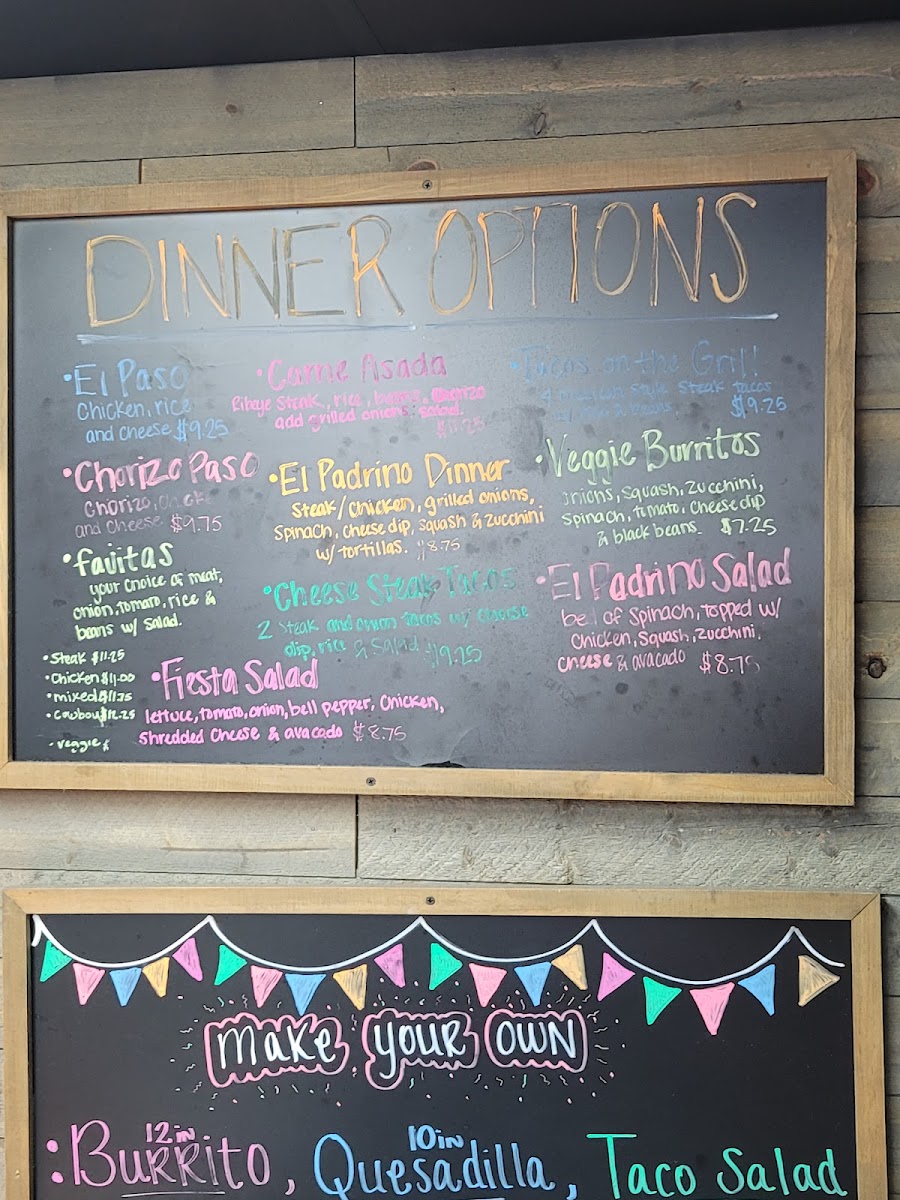 DINNER OPTIONS
• El Paso
Chicken, rice
and cheese $9.25
• Carne Asada
Ribeye Steak, rice, beans,
add grilled onions, salad.
$11.25
• Tacos on the Grill
4 mexican style steak tacos
beans. $9.25
• Chorizo Paso
Chorizo,
and cheese. $9.75
• El Padrino Dinner
Steak/chicken, grilled onions,
Spinach, cheese dip, squash & zucchini
w/ tortillas. $8.75
• Veggie Burritos
onions, squash, zucchini,
spinach, tomato, cheese dip
& black beans. $7.25
• fajitas
your choice of meat,
onion, tomato, rice &
beans w/ salad.
• Steak $11.25
• Chicken $11.00
• mixed $11.75
• Cowboy $12.25
- veggie
• Cheese Steak Tacos
2 Steak and onion tacos w/ cheese
dip, rice & Salad. $9.25
• El Padrino Salad
bed of Spinach, topped w/
Chicken, Squash, zucchini,
cheese & avacado $8.75
• Fiesta Salad
lettuce, tomato, onion, bell pepper, Chicken,
Shredded Cheese & avacado $8.75
make your own
: 12in Burrito, 10in Quesadilla, Taco Salad